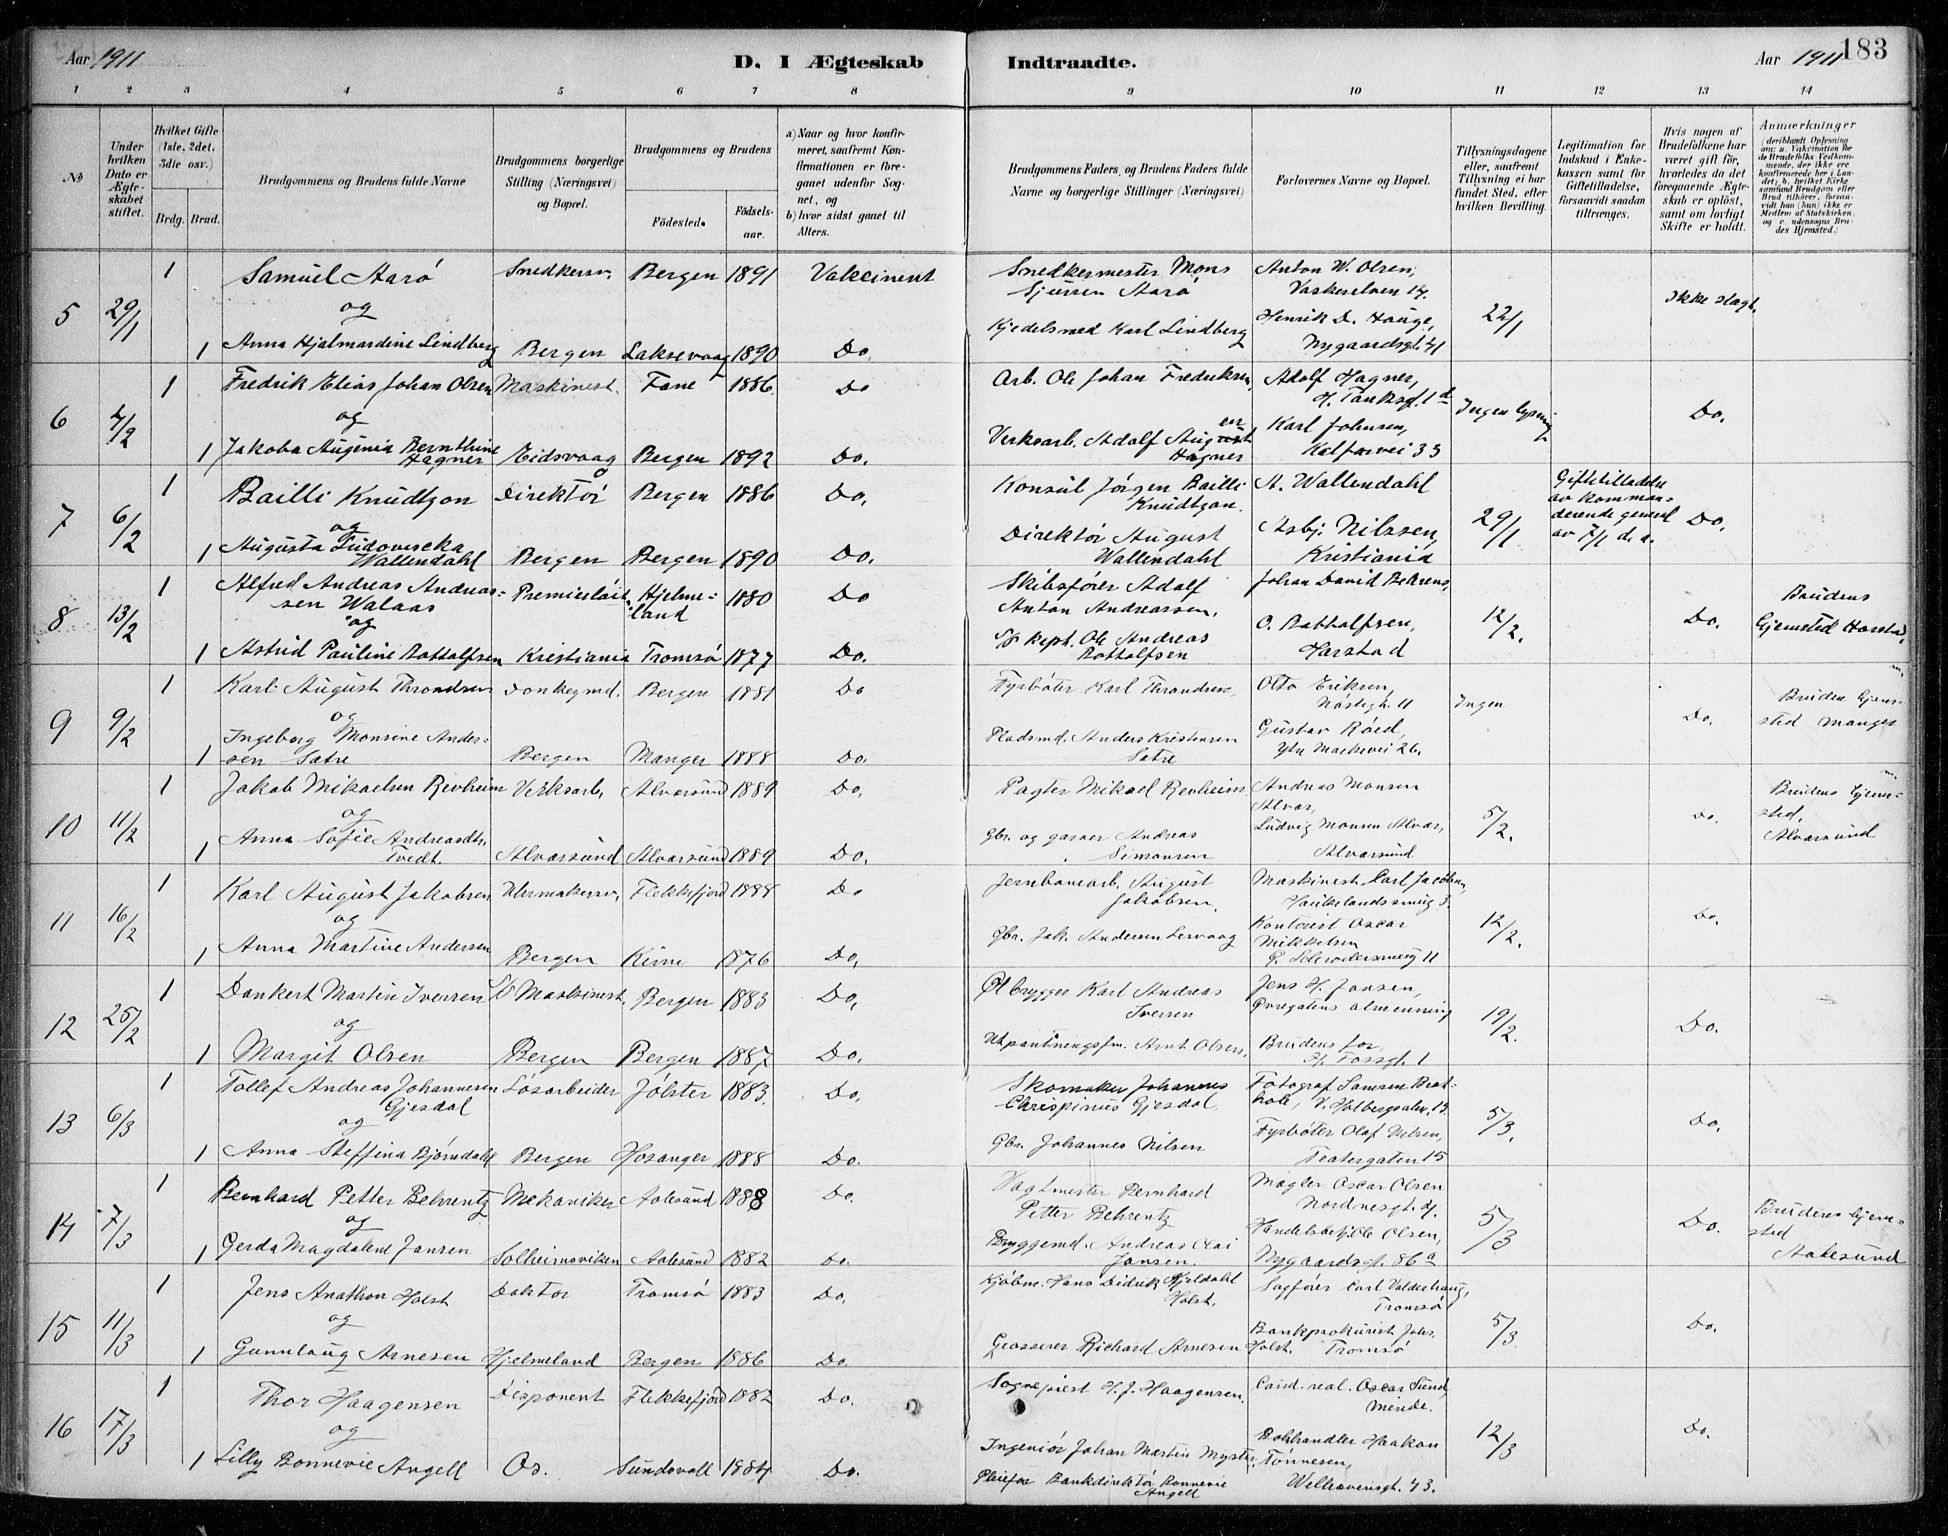 Aar 1911
D. I Ægteskab
Indtraadte.
Aar 1911
183
1 2 3 4 5 6 7 8
9 10 11 12 13 14
No
Under hvilken Dato er Ægteskabet stiftet.
Hvilket Gifte (1ste, 2det, 3die osv.)
Brdg. Brud.
Brudgommens og Brudens fulde Navne
Brudgommens borgerlige Stilling (Næringsvei) og Bopæl.
Brudgommens og Brudens
Fødested.
Fødselsaar.
a) Naar og hvor konfirmeret, saafremt Konfirmationen er foregaaet udenfor Sognet, og
b) hvor sidst gaaet til Alters.
Brudgommens Faders og Brudens Faders fulde Navne og borgerlige Stillinger (Næringsvei)
Forlovernes Navne og Bopæl.
Tillysningsdagene eller, saafremt Tillysning ei har fundet Sted, efter hvilken Bevilling.
Legitimation for Indskud i Enkekassen samt for Giftetilladelse, forsaavidt saadan tiltrænges.
Hvis nogen af Brudefolkene har været gift før, hvorledes da det foregaaende Ægteskab er opløst, samt om lovligt Skifte er holdt.
Anmærkninger
(deriblandt Oplysning om: a. Vakcination for de Brudefolks Vedkommende, der ikke ere konfirmerede her i Landet; b. hvilket Kirkesamfund Brudgom eller Brud tilhører, forsaavidt han (hun) ikke er Medlem af Statskirken, og c. udensogns Brudes Hjemsted.)
5 29/1 1 Samuel Aarø Snedkersv. Bergen 1891 Vakcinent
og
1 Anna Hjalmardine Lindberg Bergen Laksevaag 1890 Do.
Snedkermester Mons Sjursen Aarø
Kjedelsmed Karl Lindberg
Anton W. Olsen,
Vaskerelven 17.
Henrik D. Hauge,
Nygaardsgt. 41
22/1
Ikke slægt.
6 4/2 1 Fredrik Elias Johan Olsen Maskinest. Fane 1886 Do
og
1 Jakoba Augenia Bernthine Hagner Eidsvaag Bergen 1892 Do.
Arb. Ole Johan Fredriksen,
Verksarb. Adolf August Hagner
Adolf Hagner,
H. Tanksgt. 1 d
Karl Johnsen,
Kalfarvei 33
Ingen lysning
Do.
7 6/2 1 Bailli Knudtzon Direktør Bergen 1886 Do.
og
1 Augusta Ludovicka Wallendahl Bergen Bergen 1890 Do.
Konsul Jørgen Bailli Knudtzon.
Direktør August Wallendahl
A. Wallendahl
Asbj. Nilssen,
Kristiania
29/1
Giftetilladelse av kommanderende general av 7/1 d. a.
Do.
8 13/2 1 Alfred Andreas Andreassen Walaas Premierløit. Hjelmeland 1880 Do
og
1 Astrid Pauline Rottolfsen Kristiania Tromsø 1877 Do.
Skibsfører Adolf Anton Andreassen.
Sk kapt. Ole Andreas Rottolfsen
Johan David Behrens,
O. Rottolfsen,
Harstad
12/2.
Do.
Brudens Hjemsted Harstad.
9 9/2 1 Karl August Throndsen Donkeymd. Bergen 1881 Do
og
1 Ingeborg Monsine Andersen Sætre Bergen Manger 1888 Do.
Fyrbøter Karl Throndsen,
Pladsmd. Anders Kristensen Sætre
Otto Eriksen,
Nøstegt. 11
Gustav Røed,
Ytre Markevei 26.
Ingen
Do.
Brudens hjemsted Manger
10 11/2 1 Jakob Mikaelsen Revheim Verksarb. Alversund 1889 Do.
og
1 Anna Sofie Andreasdtr. Tvedt. Alversund Alversund 1889 Do.
Pagter Mikael Revheim
Gbr. og garver Andreas Simonsen
Andreas Monsen Alver,
Ludvig Monsen Alver,
Alversund
5/2.
Do.
Brudens hjemsted, Alversund
11 16/2 1 Karl August Jakobsen Uhrmakersv. Flekkefjord 1888 Do
og
1 Anna Martine Andersen Bergen Kinn 1876 Do.
Jernbanearb. August Jakobsen.
Gbr. Jak. Andersen Lervaag
Maskinest. Carl Jacobsen,
Haukelandssmug 3.
Kontorist Oscar Mikkelsen
P. Schrødersmug 11
12/2.
Do.
12 25/2 1 Dankert Martin Iversen Maskinest. Bergen 1883 Do,
og
1 Margit Olsen Bergen Bergen 1887 Do.
Ølbrygger Karl Andreas Iversen
Utpantningsfm. Arnt Olsen.
Jens H. Jansen,
Øvregatens almenning
Brudens far,
H. Fossgt. 1
19/2.
Do.
13 6/3 1 Tollef Andreas Johannesen Gjesdal Løsarbeider Jølster 1883. Do.
og
1 Anna Steffina Bjørndahl Bergen Hosanger 1888 Do.
Skomaker Johannes Chrispinus Gjesdal,
Gbr. Johannes Nilsen
Fotograf Samson Brathole, V. Holbergsalm. 13
Fyrbøter Olaf Nilsen,
Teatergaten 15
5/3.
Do.
14 7/3 1 Bernhard Petter Behrentz Mekaniker Aalesund 1888 Do.
og
1 Gerda Magdalene Jansen Solheimsviken Aalesund 1882 Do.
Vagtmester Bernhard Petter Behrentz
Bryggemd. Andreas Olai Jansen.
Mægler Oscar Olsen
Nordnesgt.
Handelsbetj. Ole Olsen,
Nygaardsgt. 86 a
5/3
Do.
Brudens hjemsted Aalesund
15 11/3 1 Jens Anathon Holst Doktor Tromsø 1883 Do.
og
1 Gunnlaug Arnesen Hjelmeland Bergen 1886 Do.
Kjøbm. Hans Didrik Kjeldahl Holst.
Grosserer Richard Arnesen
Sagfører Carl Valderhaug,
Tromsø
Bankprokurist Johs. Holst. Tromsø
5/3
Do.
16 17/3 1 Thor Haagensen Disponent Flekkefjord 1882 Do.
og
1 Lilly Bonnevie Angell Os. Sundsvall 1884 Do.
Sogneprest H. J. Haagensen,
Ingeniør Johan Martin Myster,
Pleiefar Bankdirektør Bonnevie Angell
Cand. real. Oscar Sund,
Minde.
Bokhandler Haakon Tønnesen,
Welhavensgt. 73.
12/3
Do.